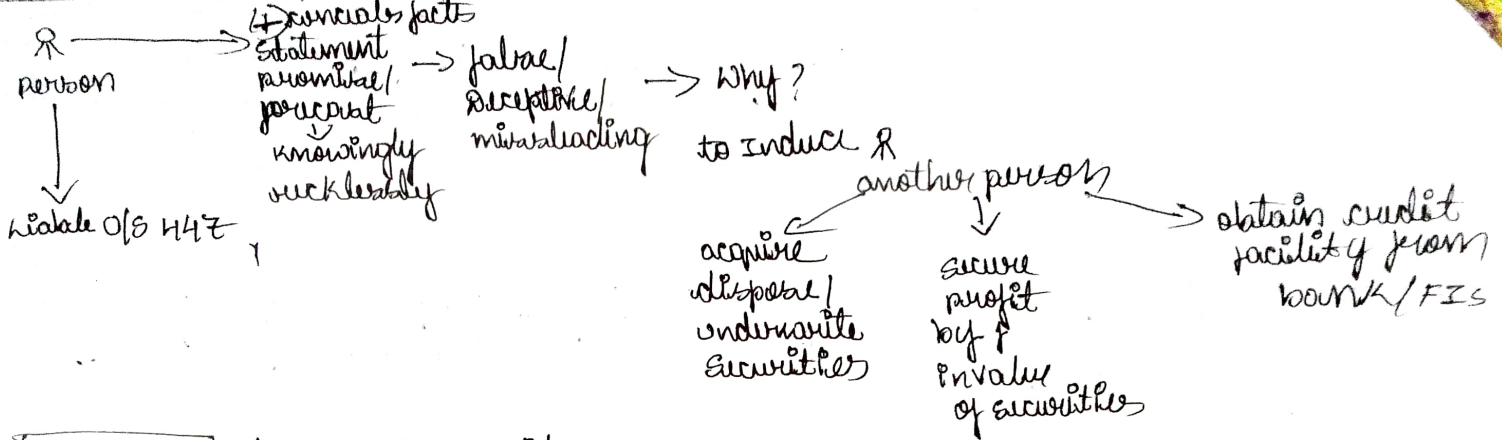 (+) conceales facts
person
statement
promise/
forecast
knowingly
recklessly
false/
Deceptive/
missleading
Why?
to Induce
another person
Liable O/S 447
acquire
dispose/
underwrite
securities
secure
profit
by ↑
in value
of securities
obtain credit
facility from
bank/FIs